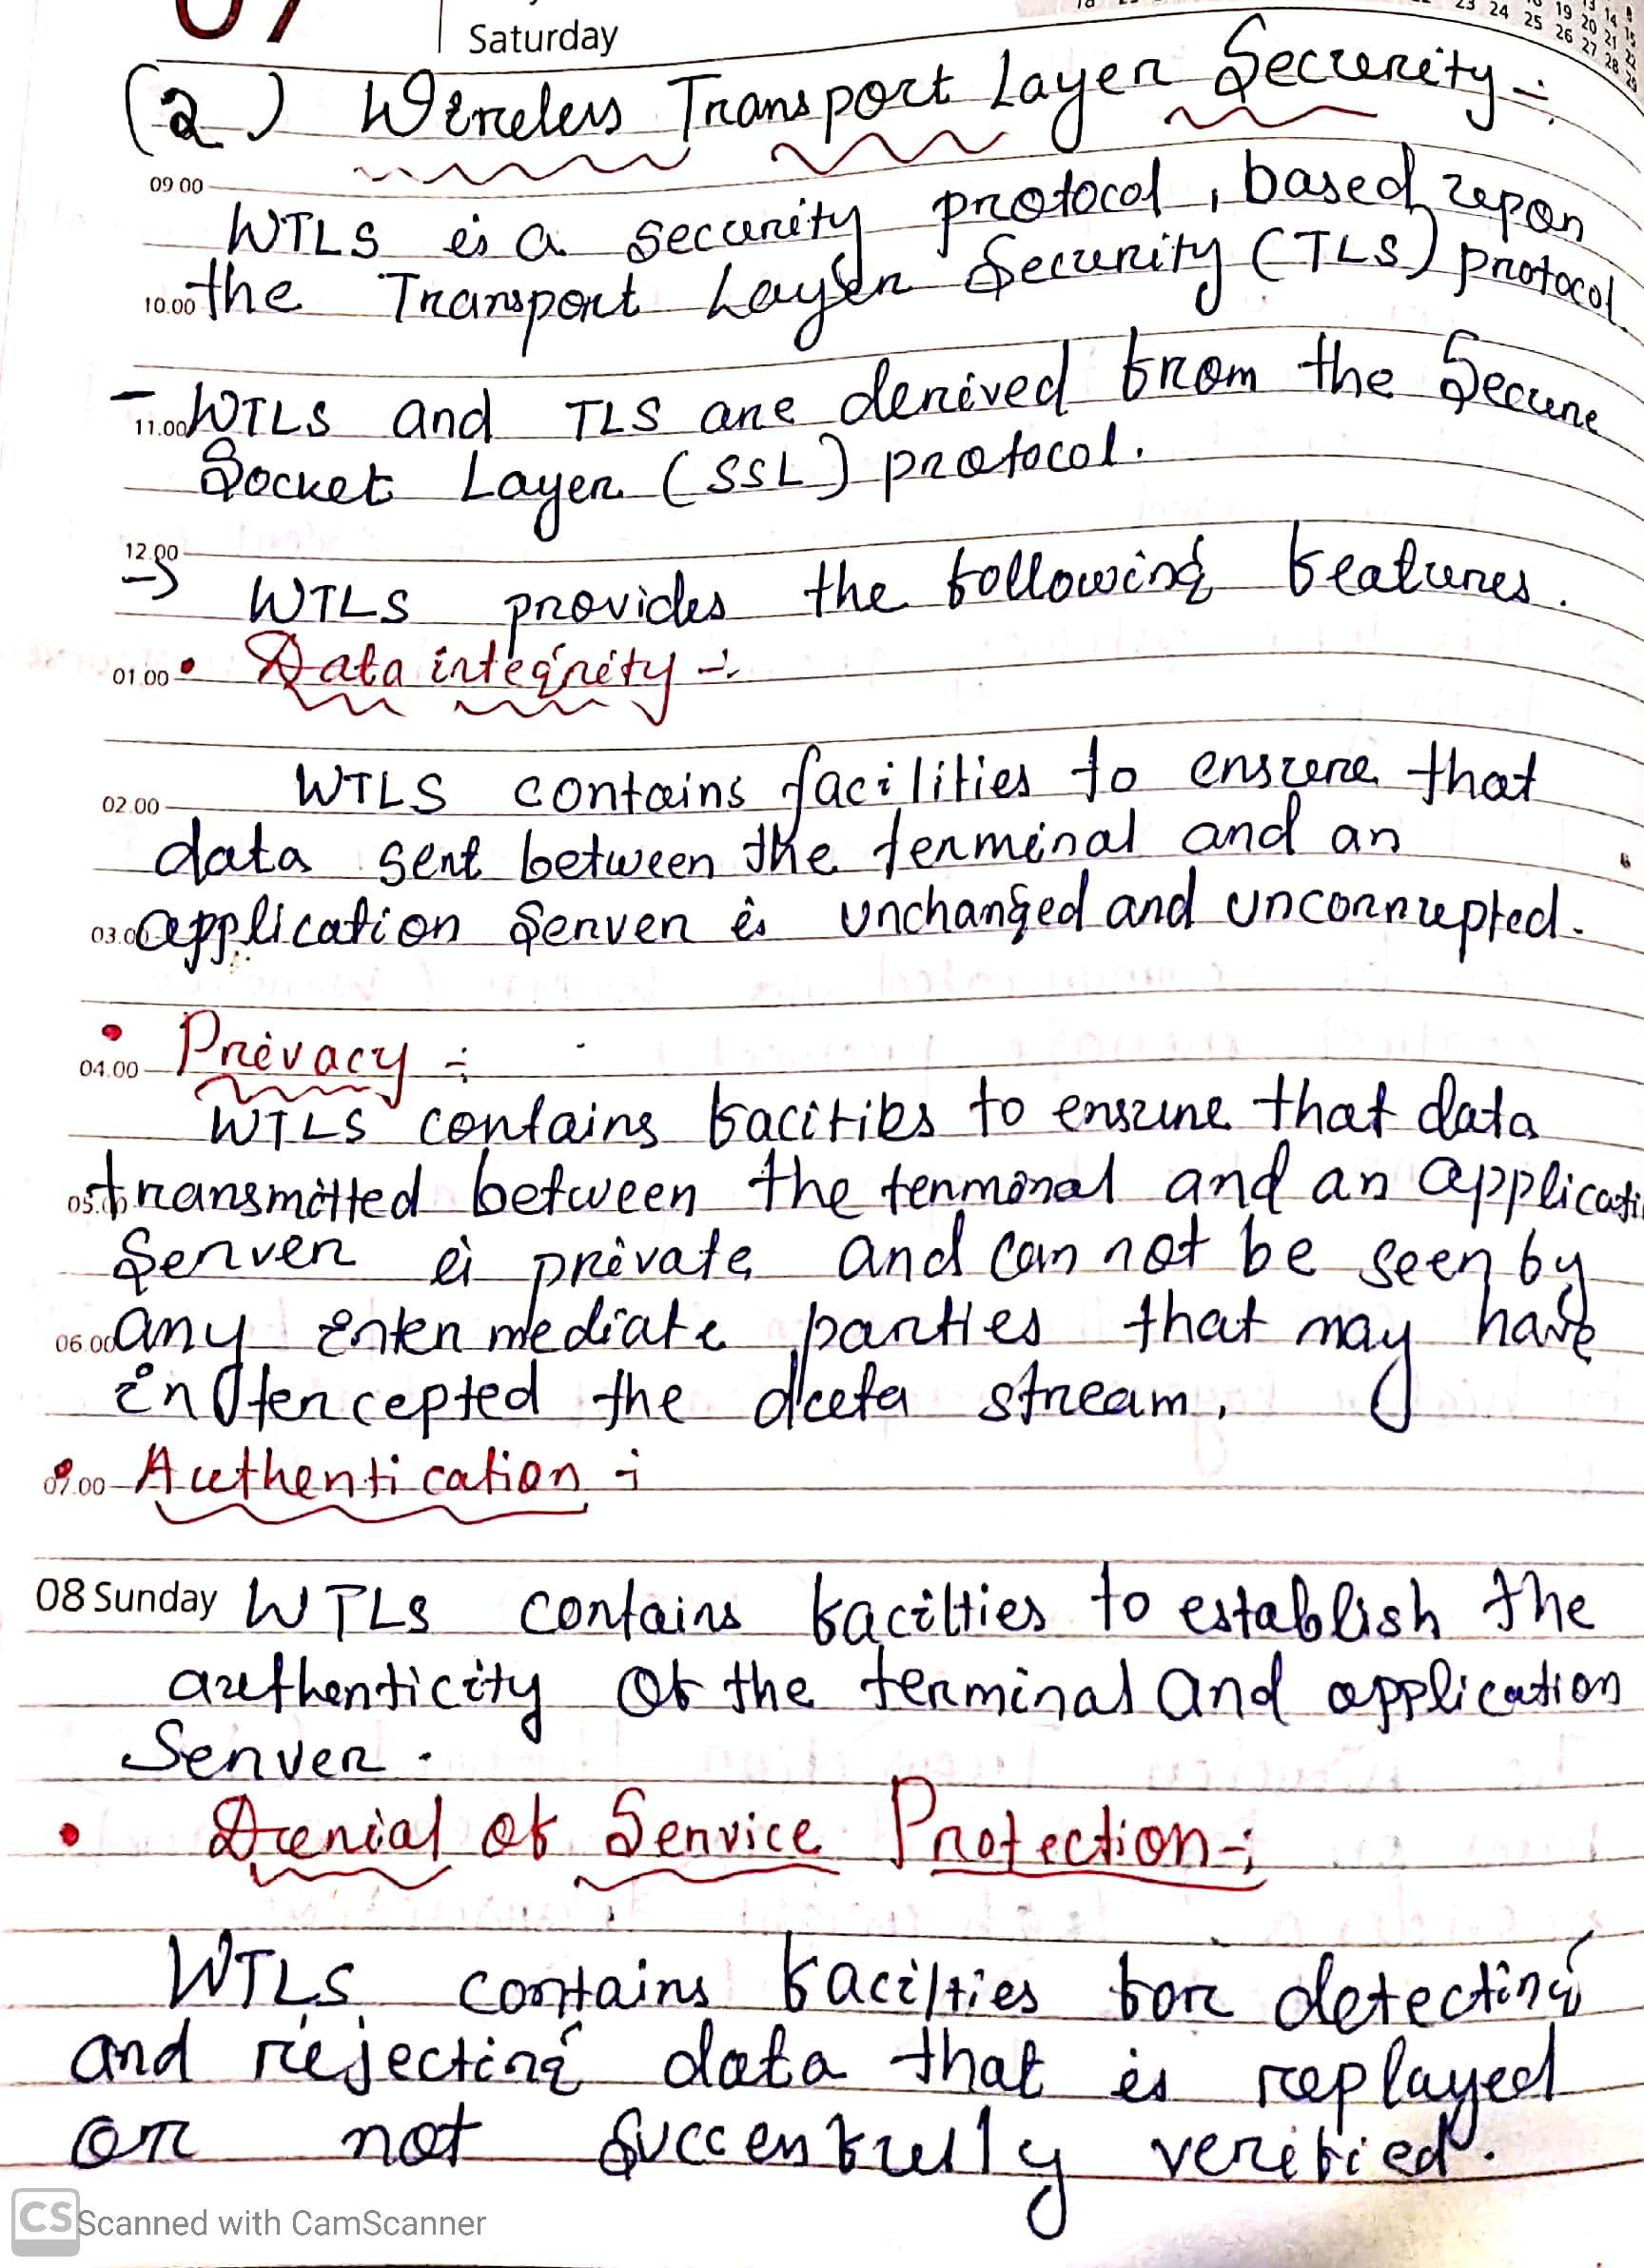 07
Saturday
(2) Wireless Transport Layer Security :-
09 00
WTLS is a security protocol, based upon
10.00 the Transport Layer Security (TLS) protocol.
- WTLS and TLS are derived from the Secure
11.00
Socket Layer (SSL) protocol.
12.00
→ WTLS provides the following features.
01.00 • Data integrity :-
WTLS contains facilities to ensure that
02.00
data sent between the terminal and an
03.00 application server is unchanged and uncorrupted.
• Privacy :-
04.00
WTLS contains facitities to ensure that data
05.00 transmitted between the termonal and an applicati
Server is private and can not be seen by
06.00 any inter mediate parties that may have
intercepted the data stream.
07.00 • Authentication :
08 Sunday WTLS contains facilties to establish the
authenticity of the terminal and application
Server.
• Denial of Service Protection :-
WTLS contains facilties for detecting
and rejecting data that is replayed
or not succesfully verified.
CS Scanned with CamScanner